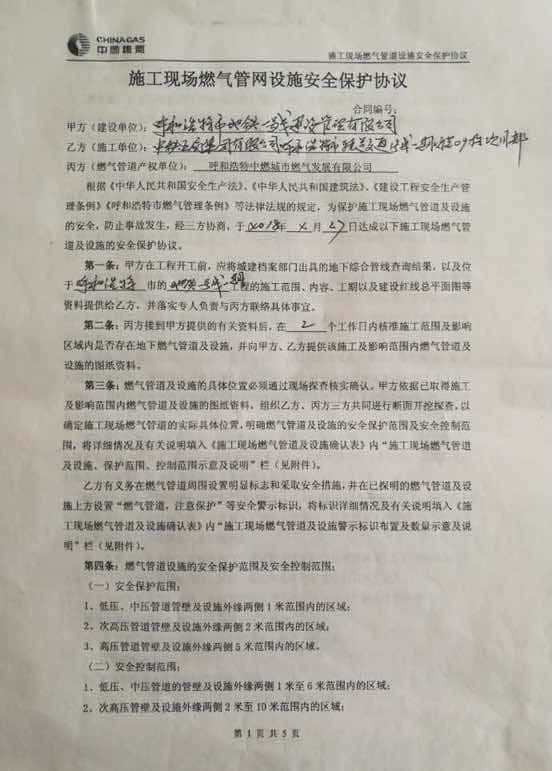 CHINAGAS
中国燃气
施工现场燃气管道设施安全保护协议
施工现场燃气管网设施安全保护协议
合同编号:
甲方（建设单位）: 呼和浩特市地铁一号线建设管理有限公司
乙方（施工单位）: 中铁五局集团有限公司呼和浩特市轨道交通1号线一期工程09标项目部
丙方（燃气管道产权单位）: 呼和浩特中燃城市燃气发展有限公司
根据《中华人民共和国安全生产法》、《中华人民共和国建筑法》、《建设工程安全生产管
理条例》《呼和浩特市燃气管理条例》等法律法规的规定，为保护施工现场燃气管道及设施
的安全，防止事故发生，经三方协商，于2018年 月27日达成以下施工现场燃气管
道及设施的安全保护协议。
第一条：甲方在工程开工前，应将城建档案部门出具的地下综合管线查询结果，以及位
于呼和浩特市的地铁一号线一期工程的施工范围、内容、工期以及建设红线总平面图等
资料提供给乙方，并落实专人负责与丙方联络具体事宜。
第二条：丙方接到甲方提供的有关资料后，在 2 个工作日内核准施工范围及影响
区域内是否存在地下燃气管道及设施，并向甲方、乙方提供该施工及影响范围内燃气管道及
设施的图纸资料。
第三条：燃气管道及设施的具体位置必须通过现场探查核实确认。甲方依据已取得施工
及影响范围内燃气管道及设施的图纸资料，组织乙方、丙方三方共同进行断面开挖探查，以
确定施工现场燃气管道的实际具体位置，明确燃气管道及设施的安全保护范围及安全控制范
围，将详细情况及有关说明填入《施工现场燃气管道及设施确认表》内“施工现场燃气管道
及设施、保护范围、控制范围示意及说明”栏（见附件）。
乙方有义务在燃气管道周围设置明显标志和采取安全措施，并在已探明的燃气管道及设
施上方设置“燃气管道，注意保护”等安全警示标识，将标识详细情况及有关说明填入《施
工现场燃气管道及设施确认表》内“施工现场燃气管道及设施警示标识布置及数量示意及说
明”栏（见附件）。
第四条：燃气管道设施的安全保护范围及安全控制范围：
（一）安全保护范围：
1、低压、中压管道管壁及设施外缘两侧1米范围内的区域；
2、次高压管道管壁及设施外缘两侧2米范围内的区域；
3、高压管道管壁及设施外缘两侧5米范围内的区域。
（二）安全控制范围：
1、低压、中压管道的管壁及设施外缘两侧1米至6米范围内的区域；
2、次高压管壁及设施外缘两侧2米至10米范围内的区域；
第 1 页 共 5 页